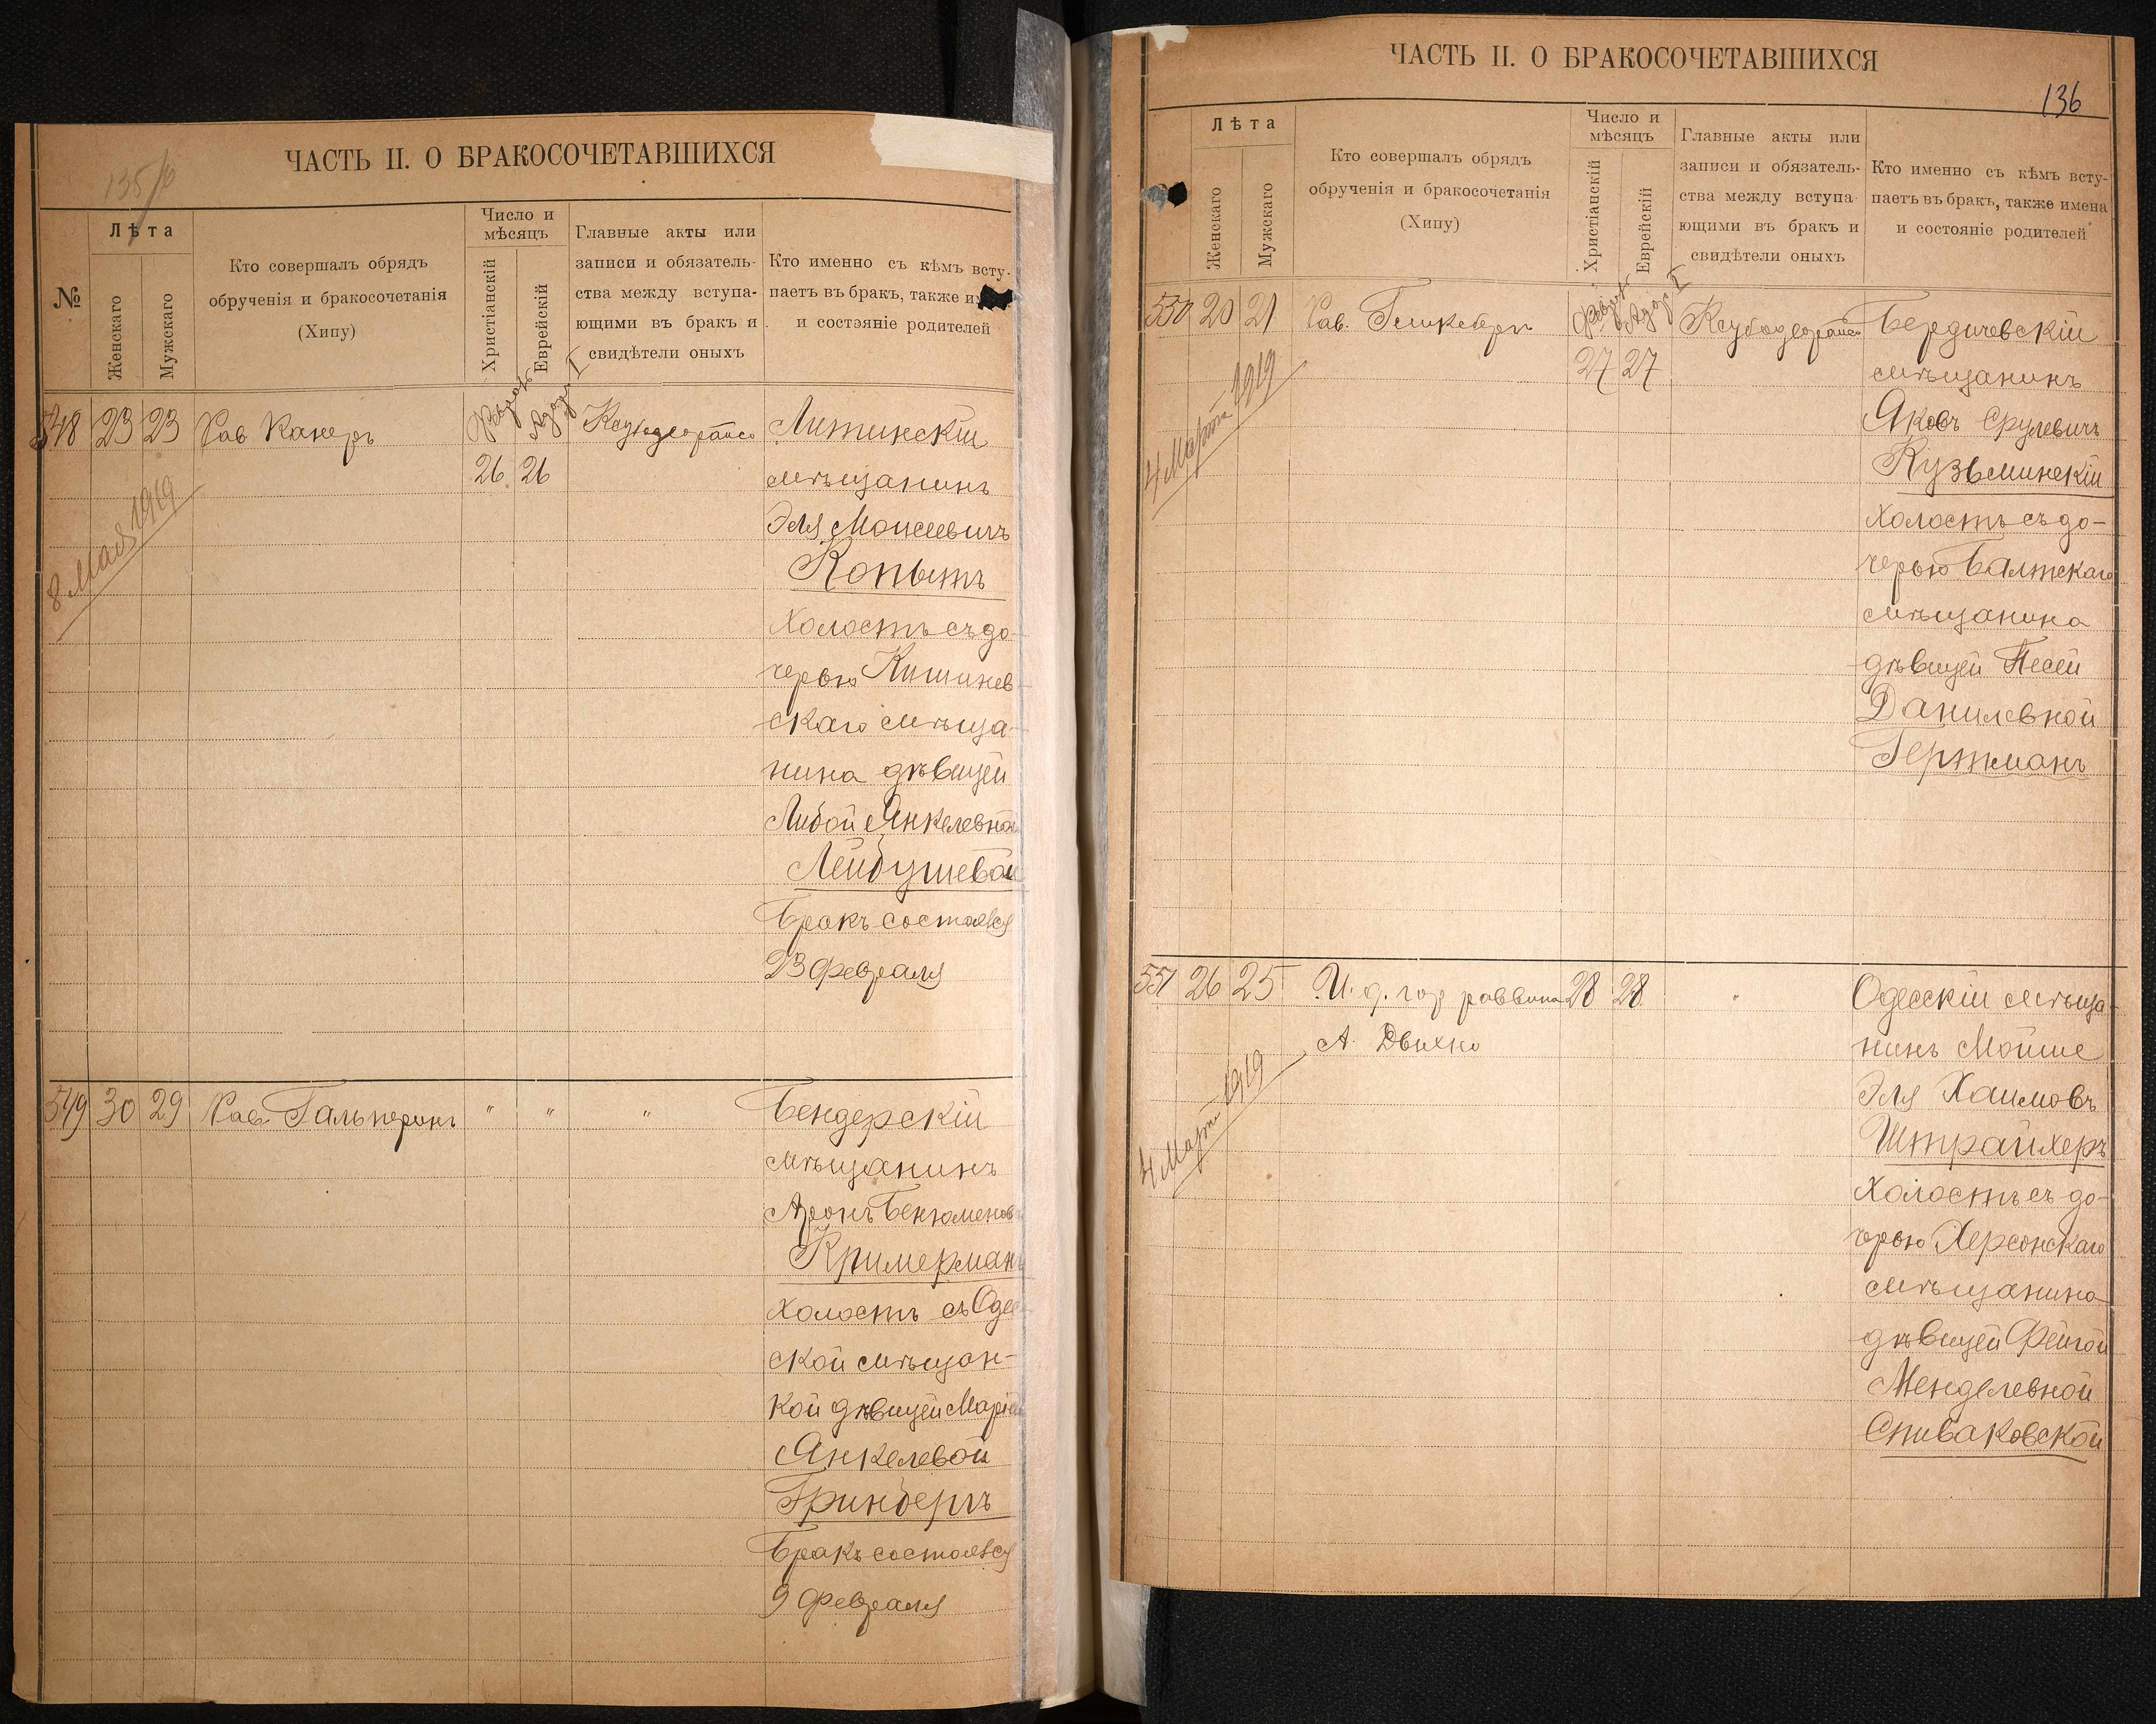 135/б
ЧАСТЬ II. О БРАКОСОЧЕТАВШИХСЯ
№
Лѣта
Женскаго
Мужскаго
Кто совершалъ обрядъ
обрученія и бракосочетанія
(Хипу)
Число и
мѣсяцъ
Христіанскій
Еврейскій
Главные акты или
записи и обязатель-
ства между вступа-
ющими въ бракъ и
свидѣтели оныхъ
Кто именно съ кѣмъ всту-
паетъ въ бракъ, также
и состояніе родителей
548 23 23 Рав Канеръ
Адаръ I
26 26
8 Мая 1919
Литинскій
мѣщанинъ
Эля Моисеевичъ
Копытъ
Холостъ съ до-
черью Кишинев-
скаго мѣща-
нина дѣвицей
Либой Янкелевной
Лейбушевой
Бракъ состоялся
23 Февраля
549 30 29 Рав. Гальперинъ " " "
Бендерскій
мѣщанинъ
Аронъ Бенюменов
Кримерманъ
Холостъ съ Одес
ской мѣщан-
кой дѣвицей Маріей
Янкелевой
Гринбергъ
Бракъ состоялся
9 Февраля
ЧАСТЬ II. О БРАКОСОЧЕТАВШИХСЯ
136
Лѣта
Женскаго
Мужскаго
Кто совершалъ обрядъ
обрученія и бракосочетанія
(Хипу)
Число и
мѣсяцъ
Христіанскій
Еврейскій
Главные акты или
записи и обязатель-
ства между вступа-
ющими въ бракъ и
свидѣтели оныхъ
Кто именно съ кѣмъ всту-
паетъ въ бракъ, также имена
и состояніе родителей
550 20 21 Рав.
Адаръ I
27 27
4 Марта 1919
Бердичевскій
мѣщанинъ
Яковъ Срулевичъ
Кузьминскій
Холостъ съ до-
черью Балтскаго
мѣщанина
дѣвицей Песей
Данилевной
Гертманъ
551 26 25 И. д. гор раввина 28 28 "
А. Двихно
4 Марта 1919
Одесскій мѣща-
нинъ Мойше
Эля Хаимовъ
Штрайхеръ
Холостъ съ до-
черью Херсонскаго
мѣщанина
дѣвицей Фейгой
Менделевной
Спиваковской